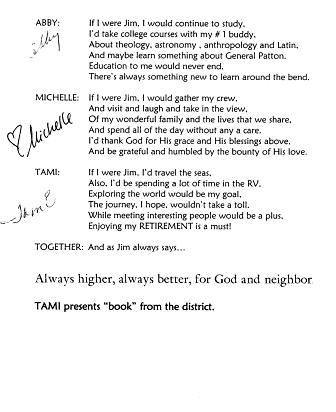 ABBY: If I were Jim, I would continue to study.
I'd take college courses with my # 1 buddy.
About theology, astronomy , anthropology and Latin,
And maybe learn something about General Patton.
Education to me would never end.
There's always something new to learn around the bend.
Abby
MICHELLE: If I were Jim, I would gather my crew,
And visit and laugh and take in the view,
Of my wonderful family and the lives that we share,
And spend all of the day without any a care.
I'd thank God for His grace and His blessings above.
And be grateful and humbled by the bounty of His love.
Michelle
TAMI: If I were Jim, I'd travel the seas.
Also, I'd be spending a lot of time in the RV.
Exploring the world would be my goal,
The journey, I hope, wouldn't take a toll.
While meeting interesting people would be a plus,
Enjoying my RETIREMENT is a must!
Tami
TOGETHER: And as Jim always says...
Always higher, always better, for God and neighbor
TAMI presents "book" from the district.